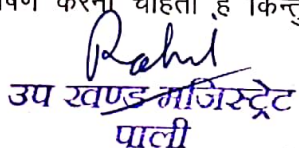 करना चाहता है किन्तु
Rahul
उप खण्ड मजिस्ट्रेट
पाली